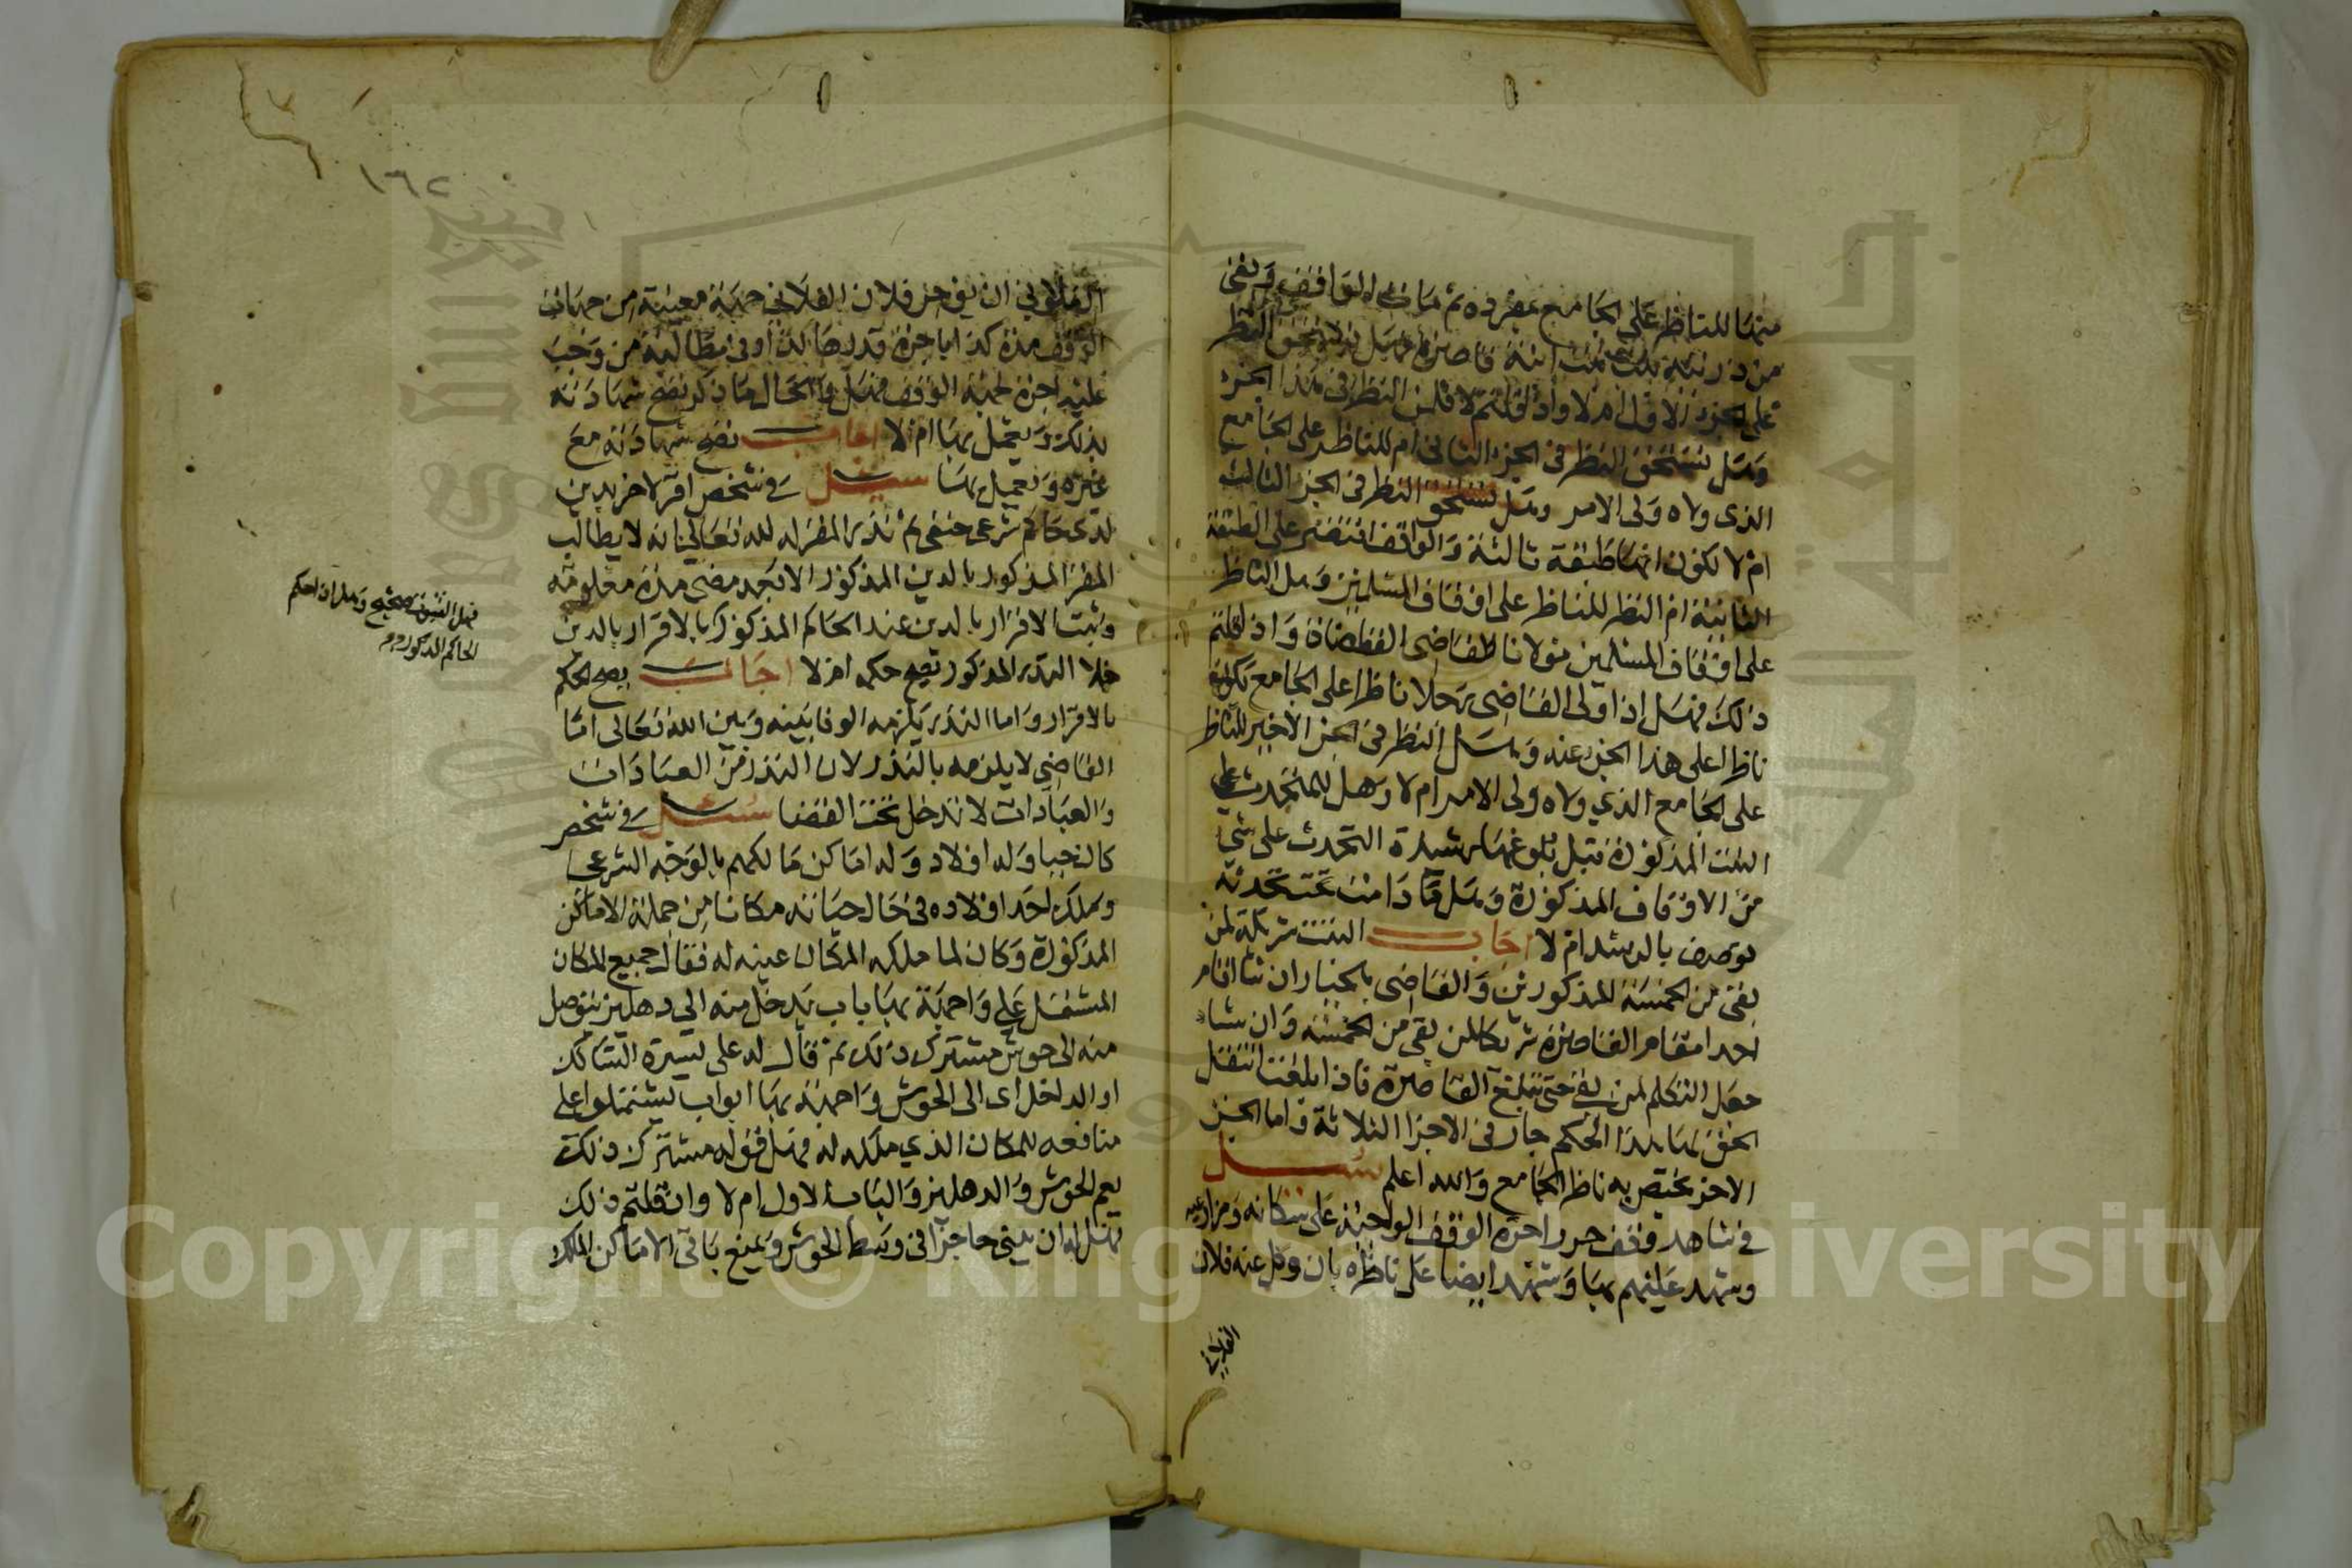 منها للناظر على الجامع بمفرده ثم مات الواقف وبقى
من ذريته بنت بنت ابنة قاصرة فهل تستحق النظر
على الجزء الاول ام لا واذا قلتم لا فلمن النظر في هذا الجزء
وهل تستحق النظر في الجزء الثاني ام للناظر على الجامع
الذى ولاه ولى الامر وهل تستحق النظر في الجزء الثالث
ام لا لكون انها طبقة ثالثة والواقف اقتصر على الطبقة
الثانية ام النظر للناظر على اوقاف المسلمين وهل الناظر
على اوقاف المسلمين مولانا قاضى القضاة واذا قلتم
ذلك فهل اذا ولى القاضى رجلا ناظرا على الجامع يكون
ناظرا على هذا الجزء عنه وهل النظر في الجزء الاخير للناظر
على الجامع الذي ولاه ولى الامر ام لا وهل للمتحدث على
البنت المذكورة قبل بلوغها رشيدة التحدث على شئ
من الاوقاف المذكورة وهل ما دامت تحت تحدثه
توصف بالرشد ام لا اجاب البنت شريكة لمن
بقى من الخمسة المذكورين والقاضى بالخيار ان شاء اقام
احدا مقام القاصرة شريكا لمن بقى من الخمسة وان شاء
جعل التكلم لمن بقى حتى تبلغ القاصرة فاذا بلغت انتقل
الحق لها هذا الحكم جار في الاجزا الثلاثة واما الجزء
الاخر يختص به ناظر الجامع والله اعلم سئل
في شاهد وقف حرر اجرة الوقف الواجبة على سكانه ومزارعيه
وشهد عليهم بها وشهد ايضا على ناظره بان وكل عنه فلان
الفلاني
١٦٢
الفلاني ان يؤجر فلان الفلاني جهة معينة من جهات
الوقف مدة كذا باجرة قدرها كذا وفى مطالبة من وجب
عليه اجرة لجهة الوقف فهل والحال ما ذكر تصح شهادته
بذلك ويعمل بها ام لا اجاب تصح شهادته مع
غيره ويعمل بها سئل في شخص اقر لاخر بدين
لدى حاكم شرعى حنفى ثم نذر المقر له لله تعالى انه لا يطالب
المقر المذكور بالدين المذكور الا بعد مضى مدة معلومة
وثبت الاقرار بالدين عند الحاكم المذكور بالاقرار بالدين
خلا النذر المذكور يصح حكمه ام لا اجاب يصح الحكم
بالاقرار واما النذر يلزمه الوفا بينه وبين الله تعالى اما
القاضي لا يلزمه بالنذر لان النذر من العبادات
والعبادات لا تدخل تحت القضا سئل في شخص
كان حيا وله اولاد وله اماكن مالكهم بالوجه الشرعى
وملك احد اولاده في حال حياته مكانا من جملة الاماكن
المذكورة وكان لما ملكه المكان عينه له فقال جميع المكان
المشتمل على واجهة بها باب يدخل منه الى دهليز يتوصل
منه الى حوش مشترك ذلك ثم قال له على يسرة السالك
او الداخل اى الى الحوش واجهة بها ابواب يشتملوا على
منافعه للمكان الذي ملكه له فهل قوله مشترك ذلك
يعم الحوش والدهليز والباب الاول ام لا وان قلتم ذلك
فهل له ان يبنى حاجزا في وسط الحوش ويمنع باقى الاماكن الملك
فهل الثبوت صحيح وهل اذا حكم
الحاكم المذكور
Copyright © King Saud University